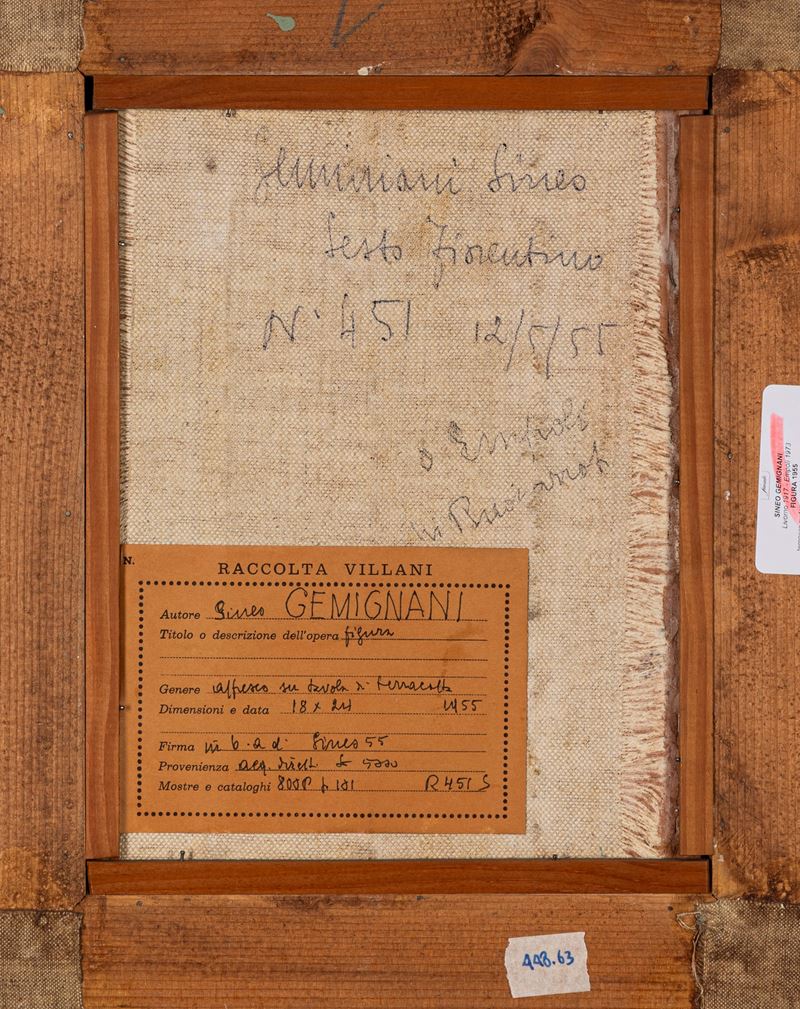 Gemignani Sineo
Sesto Fiorentino
N. 451 12/5/55
o Empoli
N.
RACCOLTA VILLANI
Autore Sineo GEMIGNANI
Titolo o descrizione dell'opera figura
Genere affresco su tavola di terracotta
Dimensioni e data 18 x 24 1955
Firma in b. a d. Sineo 55
Provenienza acq. dirett.
Mostre e cataloghi p 101 R 451 S
SINEO GEMIGNANI
Livorno 1917 - Empoli 1973
FIGURA 1955
448.63